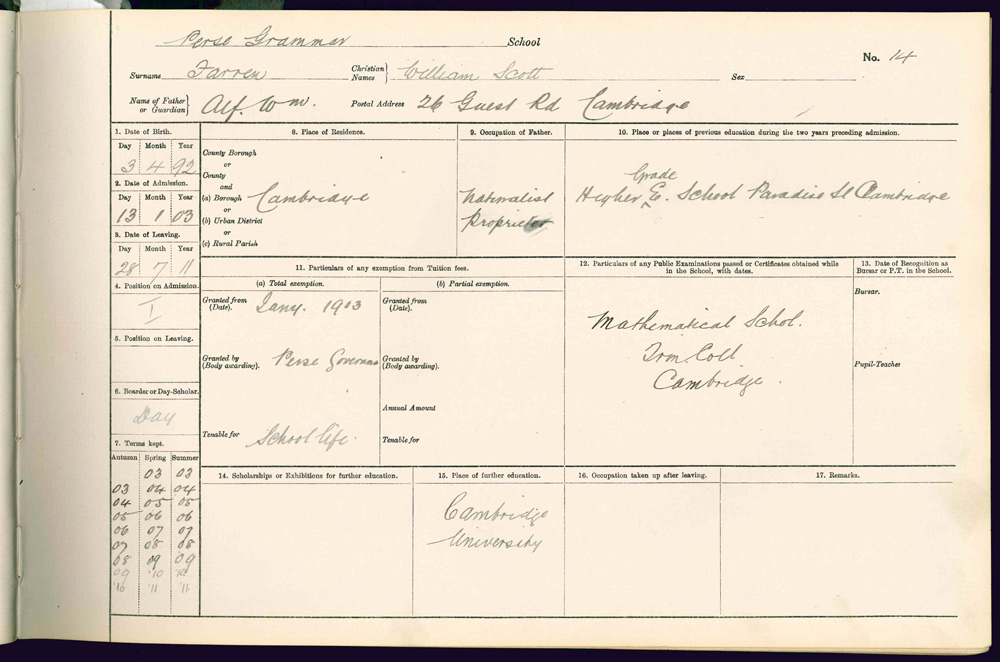 Perse Grammar School
No. 14
Surname Farren Christian Names } William Scott Sex
Name of Father or Guardian } Alf. Wm. Postal Address 26 Guest Rd Cambridge
1. Date of Birth.
Day Month Year
3 4 92
2. Date of Admission.
Day Month Year
13 1 03
3. Date of Leaving.
Day Month Year
28 7 11
4. Position on Admission.
I
5. Position on Leaving.
6. Boarder or Day-Scholar.
Day
7. Terms kept.
Autumn Spring Summer
03 03
03 04 04
04 05 05
05 06 06
06 07 07
07 08 08
08 09 09
09 '10 '10
'10 '11 '11
8. Place of Residence.
County Borough
or
County
and
(a) Borough
or
(b) Urban District
or
(c) Rural Parish
Cambridge
9. Occupation of Father.
Naturalist
Proprietor
10. Place or places of previous education during the two years preceding admission.
Grade
Higher E. School Paradise St Cambridge
11. Particulars of any exemption from Tuition fees.
(a) Total exemption.
Granted from (Date). Jany. 1903
Granted by (Body awarding). Perse Governors
Tenable for School life.
(b) Partial exemption.
Granted from (Date).
Granted by (Body awarding).
Annual Amount
Tenable for
12. Particulars of any Public Examinations passed or Certificates obtained while
in the School, with dates.
Mathematical Schol.
Trin. Coll
Cambridge.
13. Date of Recognition as
Bursar or P.T. in the School.
Bursar.
Pupil-Teacher
14. Scholarships or Exhibitions for further education.
15. Place of further education.
Cambridge
University
16. Occupation taken up after leaving.
17. Remarks.